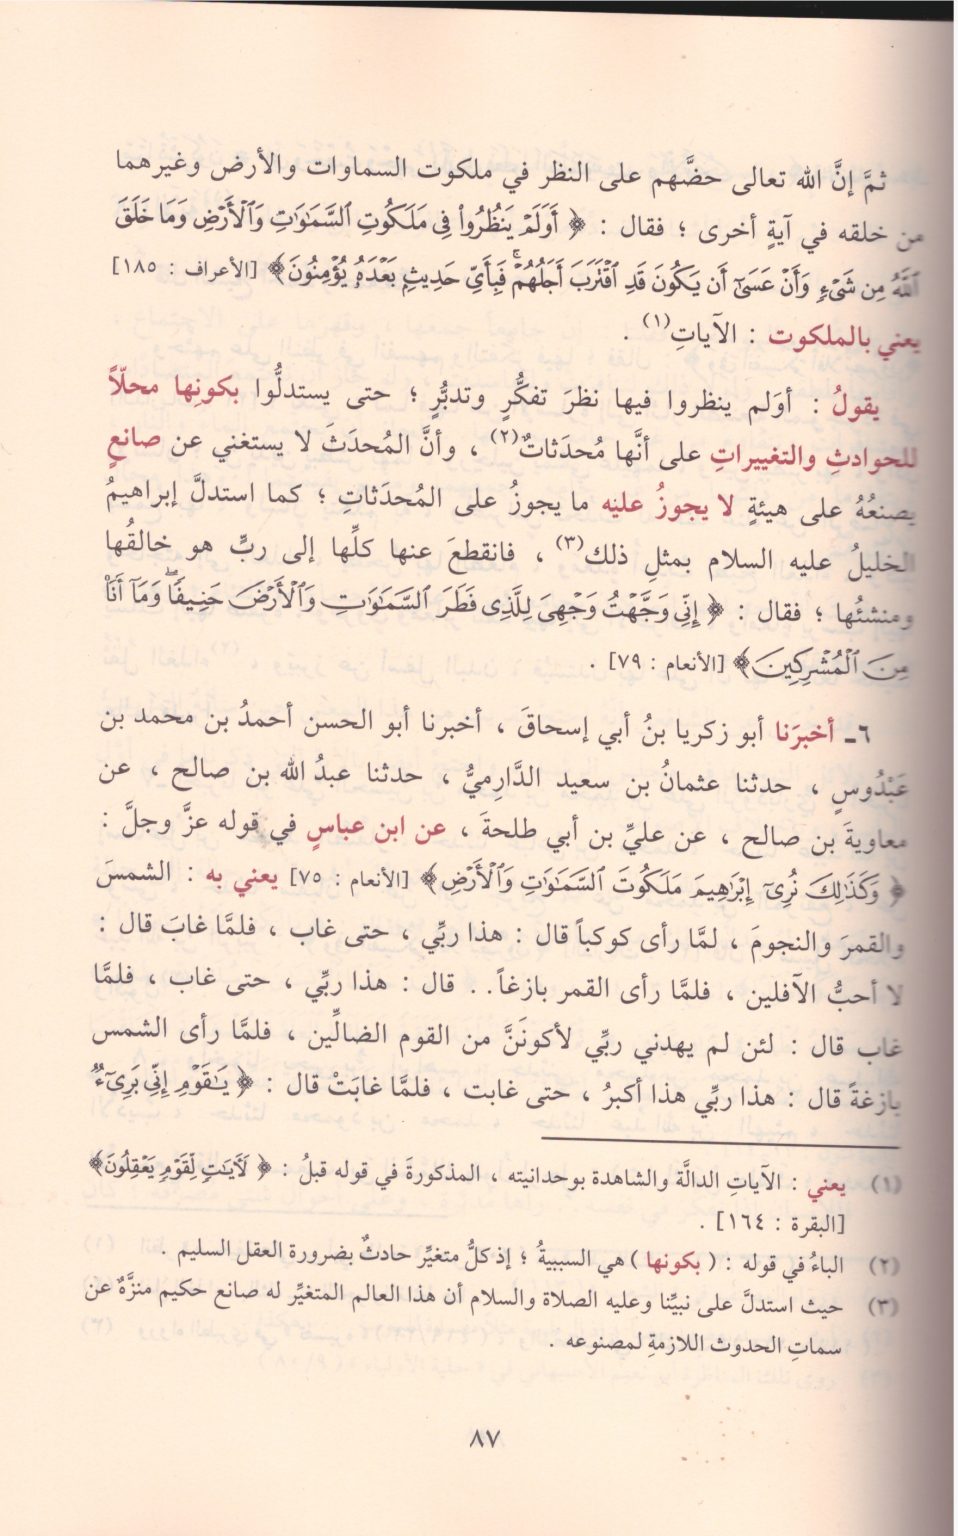 ثمَّ إنَّ الله تعالى حضَّهم على النظر في ملكوت السماوات والأرض وغيرهما
من خلقه في آيةٍ أخرى ؛ فقال : ﴿ أَوَلَمۡ يَنظُرُواْ فِي مَلَكُوتِ ٱلسَّمَٰوَٰتِ وَٱلۡأَرۡضِ وَمَا خَلَقَ
ٱللَّهُ مِن شَيۡءٖ وَأَنۡ عَسَىٰٓ أَن يَكُونَ قَدِ ٱقۡتَرَبَ أَجَلُهُمۡۖ فَبِأَيِّ حَدِيثِۭ بَعۡدَهُۥ يُؤۡمِنُونَ﴾ [الأعراف : ١٨٥]
يعني بالملكوت : الآياتِ(١) .
يقولُ : أوَلم ينظروا فيها نظرَ تفكُّرٍ وتدبُّرٍ ؛ حتى يستدلُّوا بكونِها محلّاً
للحوادثِ والتغييراتِ على أنَّها مُحدَثاتٌ(٢) ، وأنَّ المُحدَثَ لا يستغني عن صانعٍ
يصنعُهُ على هيئةٍ لا يجوزُ عليه ما يجوزُ على المُحدَثاتِ ؛ كما استدلَّ إبراهيمُ
الخليلُ عليه السلام بمثلِ ذلك(٣) ، فانقطعَ عنها كلِّها إلى ربٍّ هو خالقُها
ومنشئُها ؛ فقال : ﴿ إِنِّي وَجَّهۡتُ وَجۡهِيَ لِلَّذِي فَطَرَ ٱلسَّمَٰوَٰتِ وَٱلۡأَرۡضَ حَنِيفٗاۖ وَمَآ أَنَا۠
مِنَ ٱلۡمُشۡرِكِينَ﴾ [الأنعام : ٧٩] .
٦ـ أخبرَنا أبو زكريا بنُ أبي إسحاقَ ، أخبرنا أبو الحسن أحمدُ بن محمد بن
عَبْدُوسٍ ، حدثنا عثمانُ بن سعيد الدَّارِميُّ ، حدثنا عبدُ الله بن صالح ، عن
معاويةَ بن صالح ، عن عليِّ بن أبي طلحةَ ، عن ابن عباسٍ في قوله عزَّ وجلَّ :
﴿ وَكَذَٰلِكَ نُرِيٓ إِبۡرَٰهِيمَ مَلَكُوتَ ٱلسَّمَٰوَٰتِ وَٱلۡأَرۡضِ﴾ [الأنعام : ٧٥] يعني به : الشمسَ
والقمرَ والنجومَ ، لمَّا رأى كوكباً قال : هذا ربِّي ، حتى غاب ، فلمَّا غابَ قال :
لا أحبُّ الآفلين ، فلمَّا رأى القمر بازغاً.. قال : هذا ربِّي ، حتى غاب ، فلمَّا
غاب قال : لئن لم يهدني ربِّي لأكوننَّ من القوم الضالِّين ، فلمَّا رأى الشمس
بازغةً قال : هذا ربِّي هذا أكبرُ ، حتى غابت ، فلمَّا غابَتْ قال : ﴿ يَٰقَوۡمِ إِنِّي بَرِيٓءٞ
(١) يعني : الآياتِ الدالَّة والشاهدة بوحدانيته ، المذكورةَ في قوله قبلُ : ﴿ لَأٓيَٰتٖ لِّقَوۡمٖ يَعۡقِلُونَ﴾
[البقرة : ١٦٤] .
(٢) الباءُ في قوله : ( بكونها ) هي السببيةُ ؛ إذ كلُّ متغيِّر حادثٌ بضرورة العقل السليم .
(٣) حيث استدلَّ على نبيِّنا وعليه الصلاة والسلام أن هذا العالم المتغيِّر له صانع حكيم منزَّهٌ عن
سماتِ الحدوث اللازمةِ لمصنوعه .
٨٧